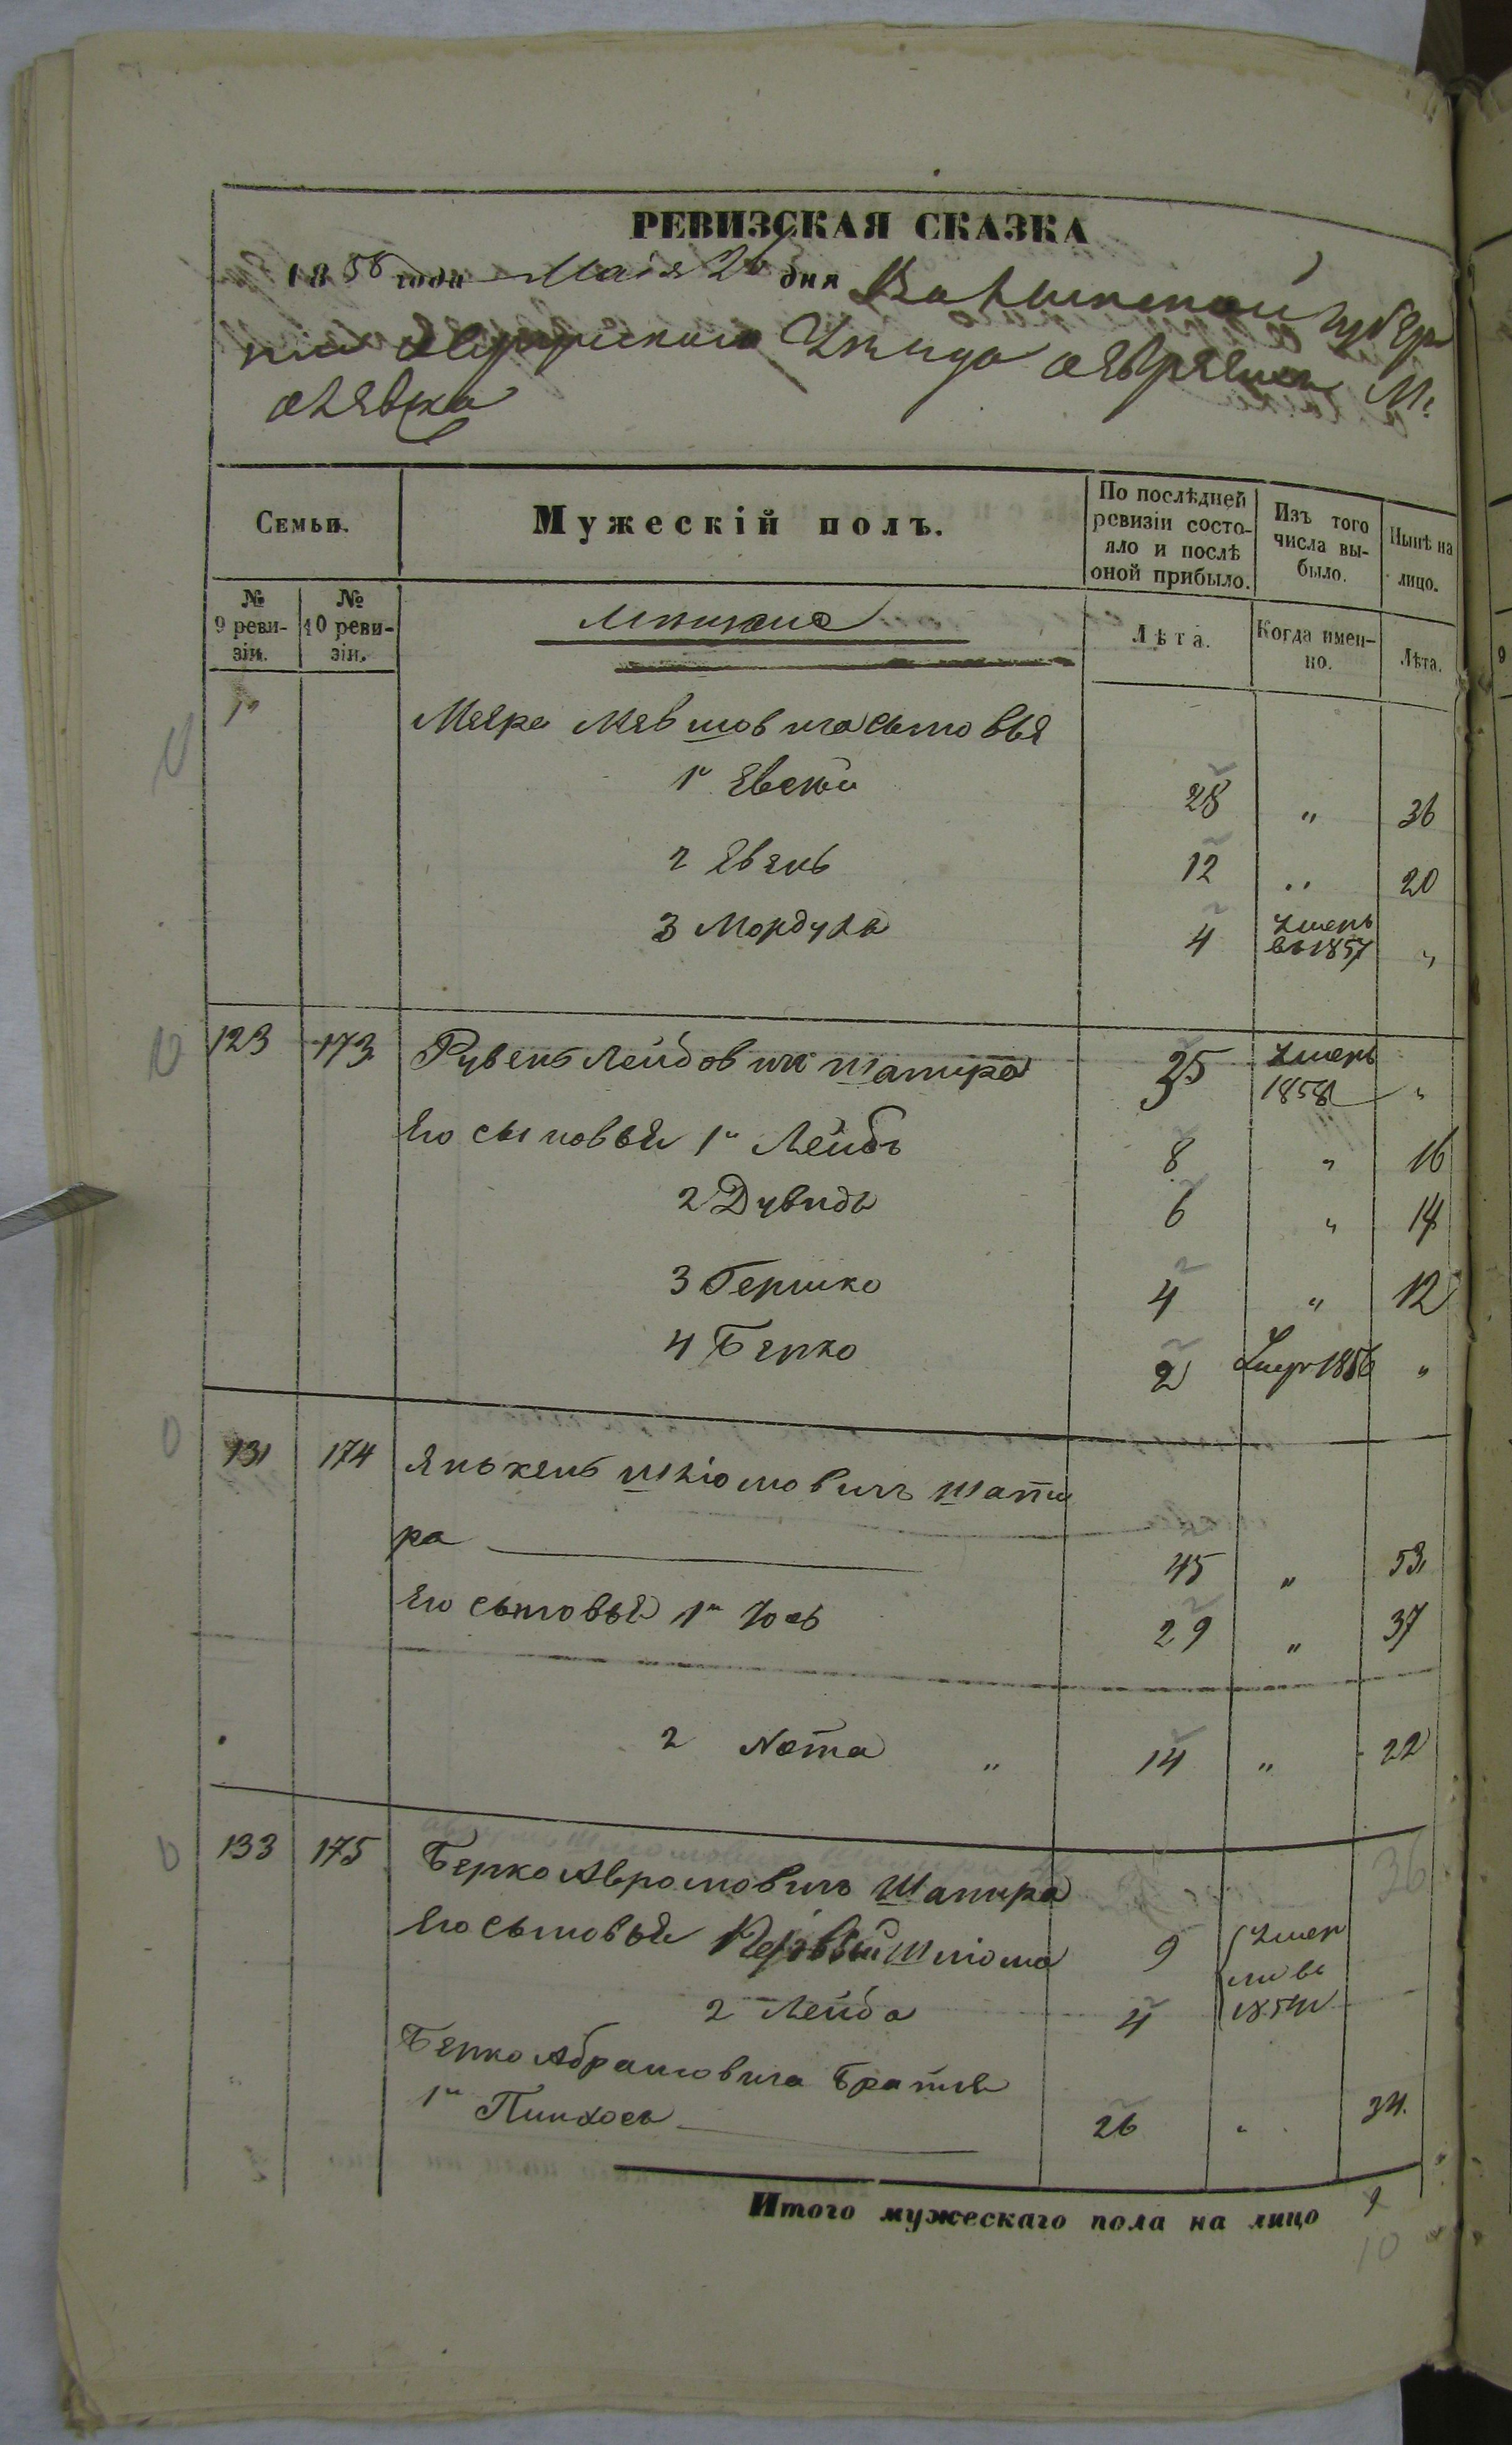 РЕВИЗСКАЯ СКАЗКА
1858 года Маія 26 дня Волынской губер
ніи Уѣзда
Семьи.
Мужескій полъ.
По послѣдней ревизіи состояло и послѣ оной прибыло.
Изъ того числа выбыло.
Нынѣ на лицо.
№ 9 ревизіи.
№ 10 ревизіи.
Мѣщане
Лѣта.
Когда именно.
Лѣта.
Меера сыновья
1й 28 „ 36
2 12 „ 20
3 Мордухъ 4 Умеръ въ 1857 „
123 173 Рувенъ Лейбовичъ Шапира 35 Умеръ 1858 „
Его сыновья 1й Лейбъ 8 „ 16
2 Дувидъ 6 „ 14
3 Гершко 4 „ 12
4 Берко 2 Умер 1856 „
131 174 Янькель Шліомовичъ Шапи
ра 45 „ 53
Его сыновья 1й Іось 29 „ 37
2 Нота „ 14 „ 22
133 175 Берко Авромовичъ Шапира 36
Его сыновья Первый Шліома 9 Умер
2 Лейба 4 ли въ 1854
Берко Абрамовича братья
1й Пинхосъ 26 „ 34
Итого мужескаго пола на лицо 9
10